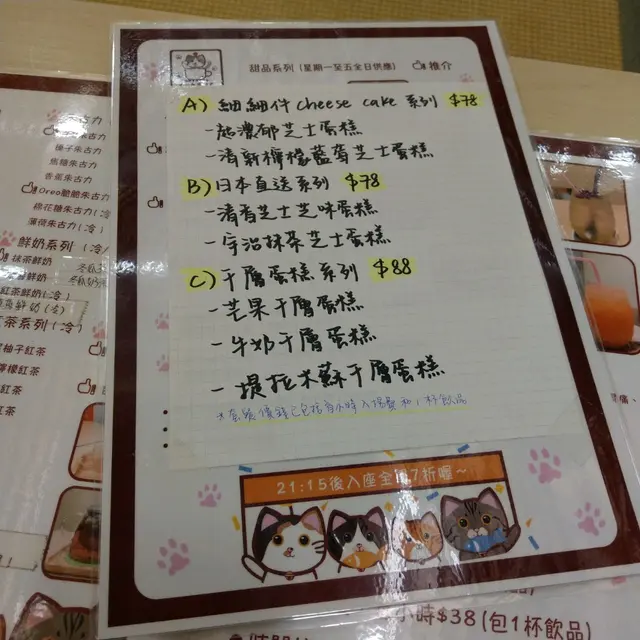 甜品系列 (星期一至五全日供應) 推介
A) 細細件 cheese cake 系列 $78
-超濃郁芝士蛋糕
-清新檸檬藍莓芝士蛋糕
B) 日本直送系列 $78
-清香芝士芝味蛋糕
-宇治抹茶芝士蛋糕
C) 千層蛋糕系列 $88
-芒果千層蛋糕
-牛奶千層蛋糕
-提拉米蘇千層蛋糕
21:15後入座全單7折喔~
小時$38(包1杯飲品)
朱古力
朱古力
榛子朱古力
焦糖朱古力
香蕉朱古力
Oreo脆脆朱古力
棉花糖朱古力(冷
薄荷朱古力(冷
鮮奶系列 (冷/
抹茶鮮奶
茶鮮奶
紅茶鮮奶(冷)
茶系列 (冷)
柚子紅茶
檸檬紅茶
紅茶
紅茶